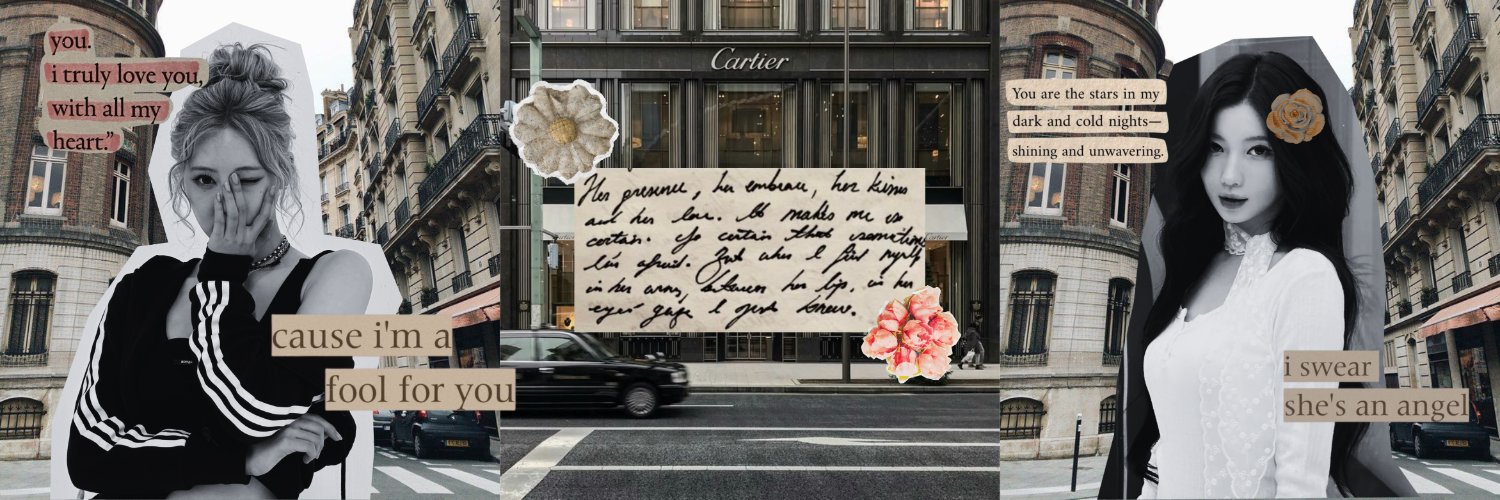 you.
i truly love you,
with all my
heart.”
cause i'm a
fool for you
Cartier
Her presence, her embrace, her kisses
and her love. It makes me so
certain. So certain that sometimes
I'm afraid. Yet when I find myself
in her arms, between her lips, in her
eyes' gaze I just know.
You are the stars in my
dark and cold nights—
shining and unwavering.
i swear
she's an angel